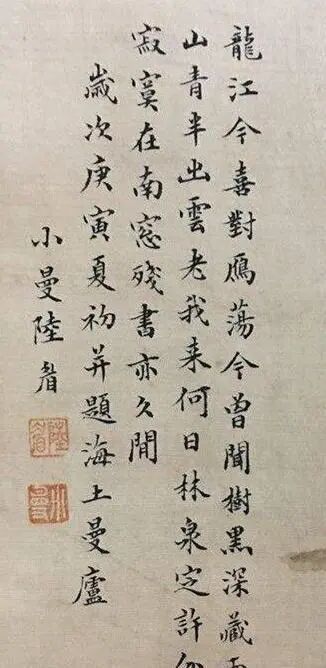 龍江今喜對鴈蕩今曽聞樹黒深藏
山青半出雲老我来何日林泉定許
寂寞在南窓殘書亦久閒
歲次庚寅夏初并題海上曼廬
小曼陸眉
陸眉
小曼